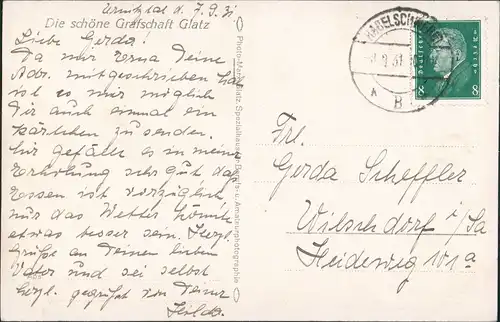 Urnitztal d. 7.9.31
Die schöne Grafschaft Glatz
Liebe Gerda!
Da mir Erna Deine
Adr. mitgeschrieben hat
ist es mir möglich
Dir auch einmal ein
Kärtchen zu senden.
Mir gefällt es in meiner
Erholung sehr gut das
Essen ist vorzüglich
nur das Wetter könnte
etwas besser sein. Herzl.
Grüße an Deinen lieben
Vater und sei selbst
herzl. gegrüßt von Deiner
Hilde.
HABELSCHWERDT
A B
DEUTSCHES REICH
8 8
Frl.
Gerda Scheffler
Wilschdorf i/Sa
Heideweg 101a